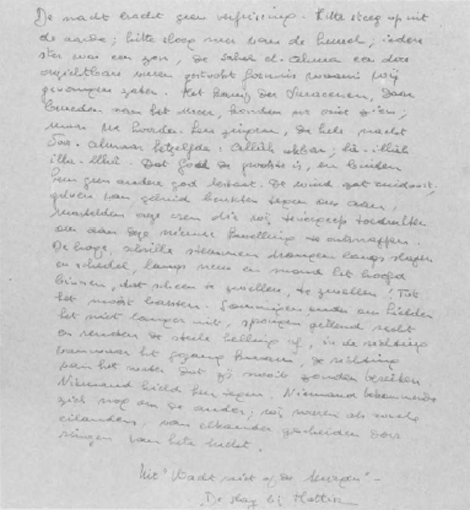 De nacht bracht geen verfrissing. Hitte steeg op uit
de aarde; hitte sloeg neer van de hemel; iedere
ster was een zon, de Sahel el-Ahma een door
onzichtbare muren gestookt fornuis waarin wij
gevangen zaten. Het kamp der Saracenen, daar
beneden aan het Meer, konden we niet zien;
maar we hoorden hun zingen, de hele nacht
door. Almaar hetzelfde: Allah akbar; la-illah
illa-llah. Dat God de grootste is, en buiten
hem geen andere god bestaat. De wind zat zuidwest;
golven van geluid beukten tegen ons aan,
martelden onze oren die wij tevergeefs toedrukten
om aan deze nieuwe kwelling te ontsnappen.
De hoge, schrille stemmen drongen langs slapen
en schedel, langs neus en mond het hoofd
binnen, dat scheen te zwellen, te zwellen! Tot
het moest barsten. Sommigen onder ons hielden
het niet langer uit, sprongen gillend recht
en renden de steile helling af, in de richting
vanwaar het gezang kwam, de richting
van het water dat zij nooit zouden bereiken.
Niemand hield hen tegen. Niemand bekommerde
zich nog om de ander; wij waren als
eilanden, van elkander gescheiden door
ringen van hete lucht.
Uit "Wacht niet op de morgen" -
De slag bij Hattin